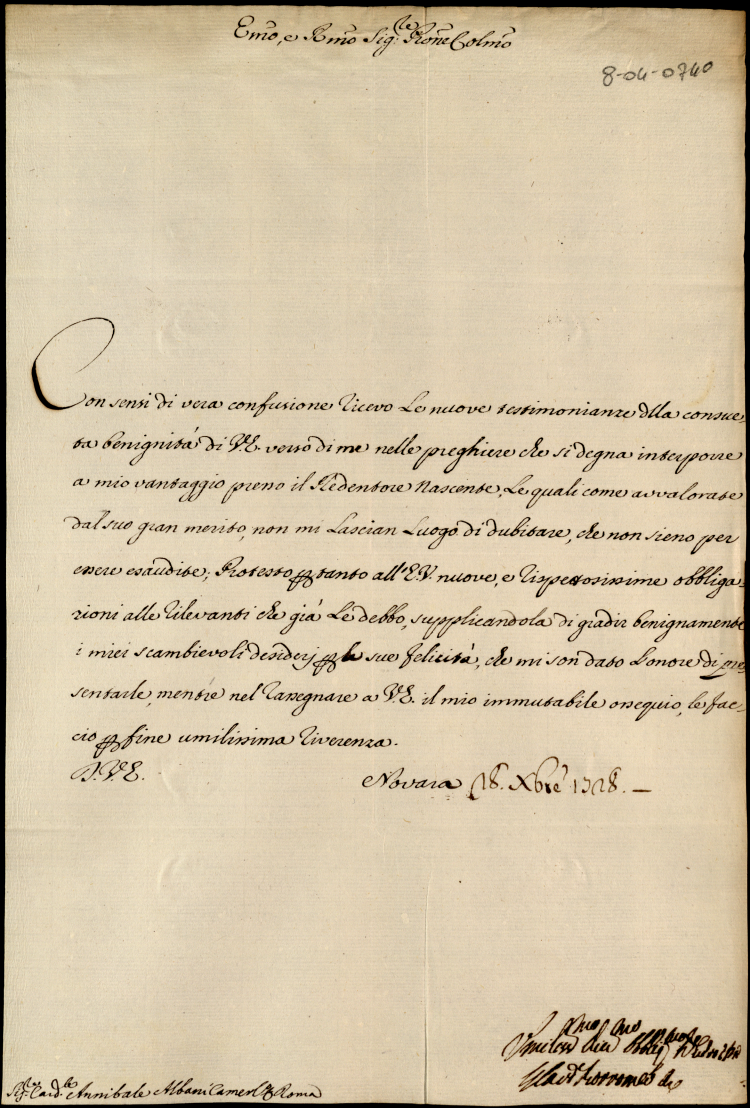 Emo, e Rmo Sig.re Prone Colmo
8-04-0740
Con sensi di vera confusione ricevo le nuove testimonianze dlla consue,
ta benignità di V.E. verso di me nelle preghiere che si degna interporre
a mio vantaggio presso il Redentore Nascente, Le quali come avvalorate
dal suo gran merito, non mi Lascian Luogo di dubitare, che non sieno per
essere esaudite; Protesto ptanto all'E.V. nuove, e rispettosissime obbliga,
zioni alle rilevanti che già Le debbo, supplicandola di gradir benignamente
i miei scambievoli desiderj p le sue felicità, che mi son dato L'onore di pre,
sentarle, mentre nel rassegnare a V.E. il mio immutabile ossequio, le fac,
cio p fine umilissima riverenza.
D.V.E.
Novara 28. Xbre 1728.
Sig.r Card.le Annibale Albani Camerl.o Roma